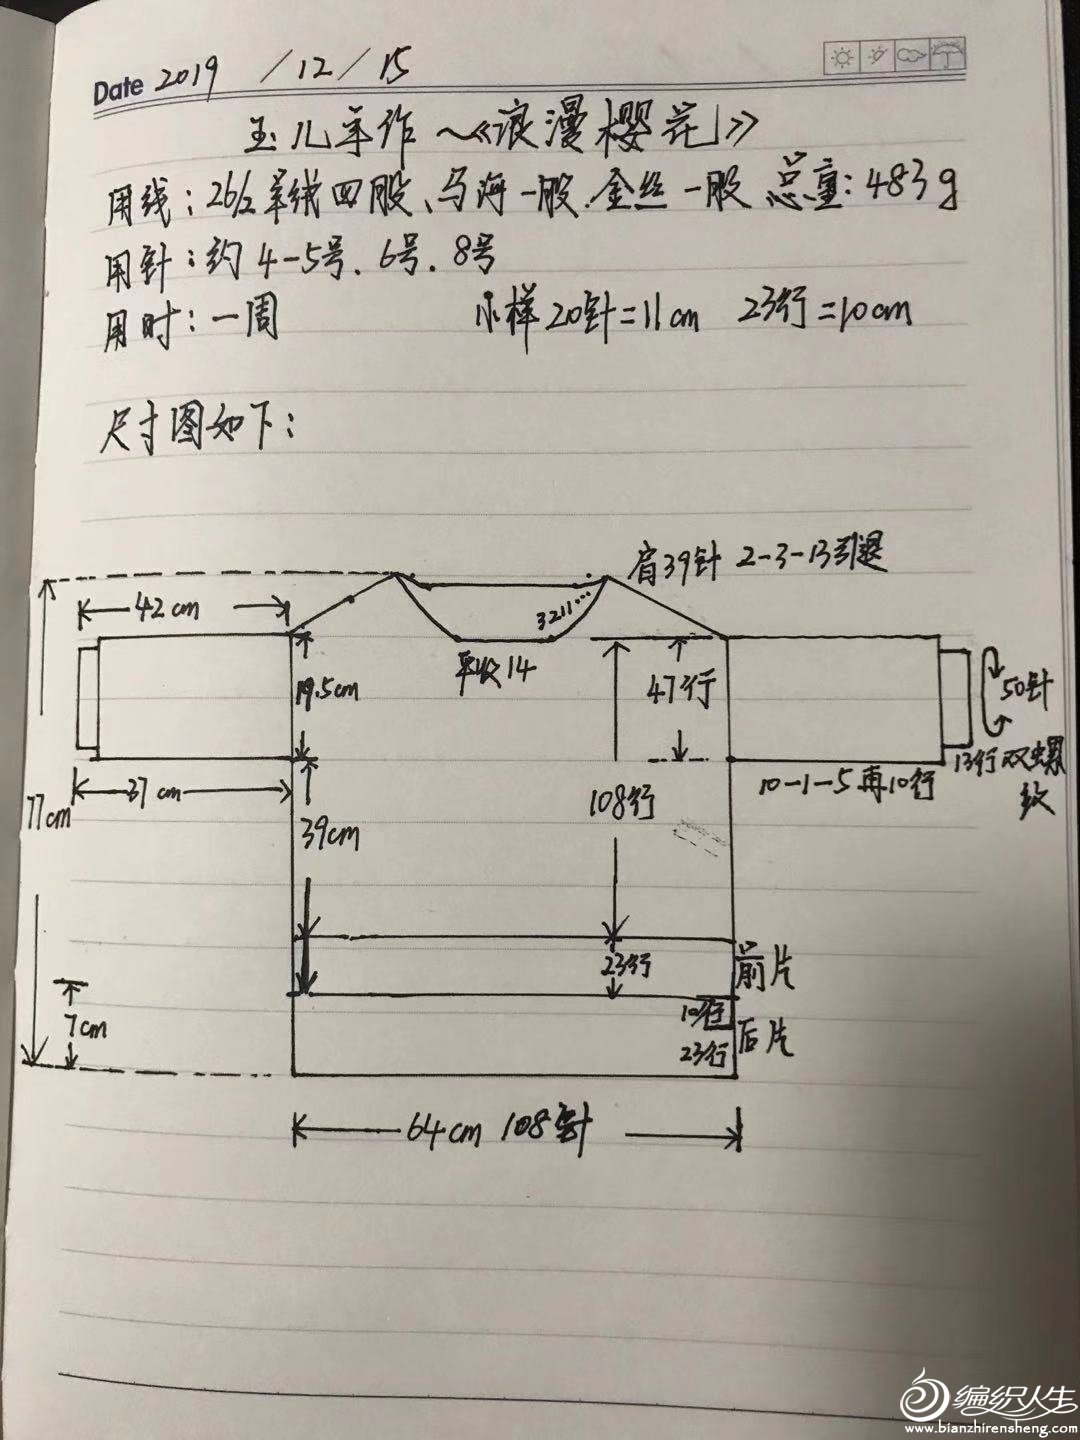 Date 2019 / 12 / 15
玉儿手作～《浪漫樱花》
用线：26/2羊绒四股、马海一股.金丝一股 总重：483g
用针：约4-5号.6号.8号
用时：一周 小样20针=11cm 23行=10cm
尺寸图如下：
肩39针 2-3-13引退
42cm
3211...
平收14
19.5cm
47行
50针
13行双螺纹
37cm
10-1-5再10行
77cm
39cm
108行
23行
前片
10行
7cm
23行
后片
64cm 108针
编织人生
www.bianzhirensheng.com